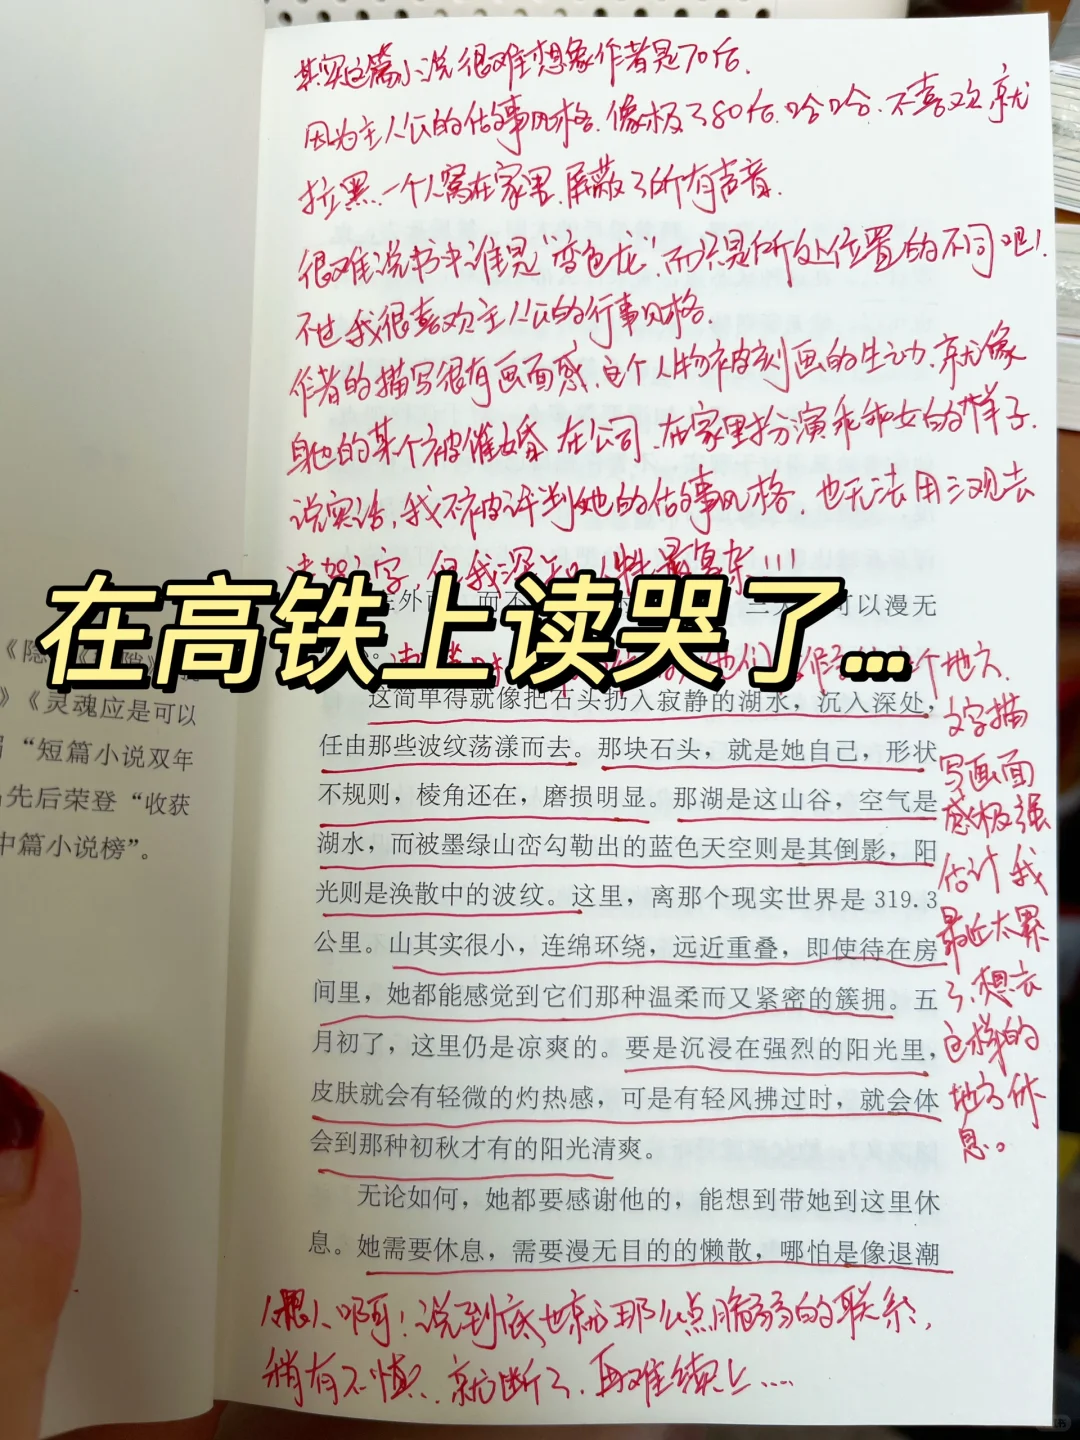 其实这篇小说很难想象作者是70后.
因为主人公的故事风格.像极了80后.哈哈.不喜欢就
拉黑.一个人窝在家里.屏蔽了所有声音.
很难说书中谁是“变色龙”而只是所处位置的不同吧!
不过我很喜欢主人公的行事风格.
作者的描写很有画面感.这个人物被刻画的生动.就像
身边的某个被催婚.在公司.在家里扮演乖乖女的样子.
说实话,我不评判她的故事风格.也无法用三观去
字,但我深知人性最复杂!!!
在高铁上读哭了...
外 而不 三 可以漫无
这个地方.
文字描
写画面
感极强
估计我
最近太累
了.想去
这样的
地方休
息。
《隐
》《灵魂应是可以
“短篇小说双年
先后荣登“收获
中篇小说榜”。
这简单得就像把石头扔入寂静的湖水，沉入深处，
任由那些波纹荡漾而去。那块石头，就是她自己，形状
不规则，棱角还在，磨损明显。那湖是这山谷，空气是
湖水，而被墨绿山峦勾勒出的蓝色天空则是其倒影，阳
光则是涣散中的波纹。这里，离那个现实世界是 319.3
公里。山其实很小，连绵环绕，远近重叠，即使待在房
间里，她都能感觉到它们那种温柔而又紧密的簇拥。五
月初了，这里仍是凉爽的。要是沉浸在强烈的阳光里，
皮肤就会有轻微的灼热感，可是有轻风拂过时，就会体
会到那种初秋才有的阳光清爽。
无论如何，她都要感谢他的，能想到带她到这里休
息。她需要休息，需要漫无目的的懒散，哪怕是像退潮
人跟人啊!说到底也就那么点脆弱的联系,
稍有不慎.就断了.再难续上....